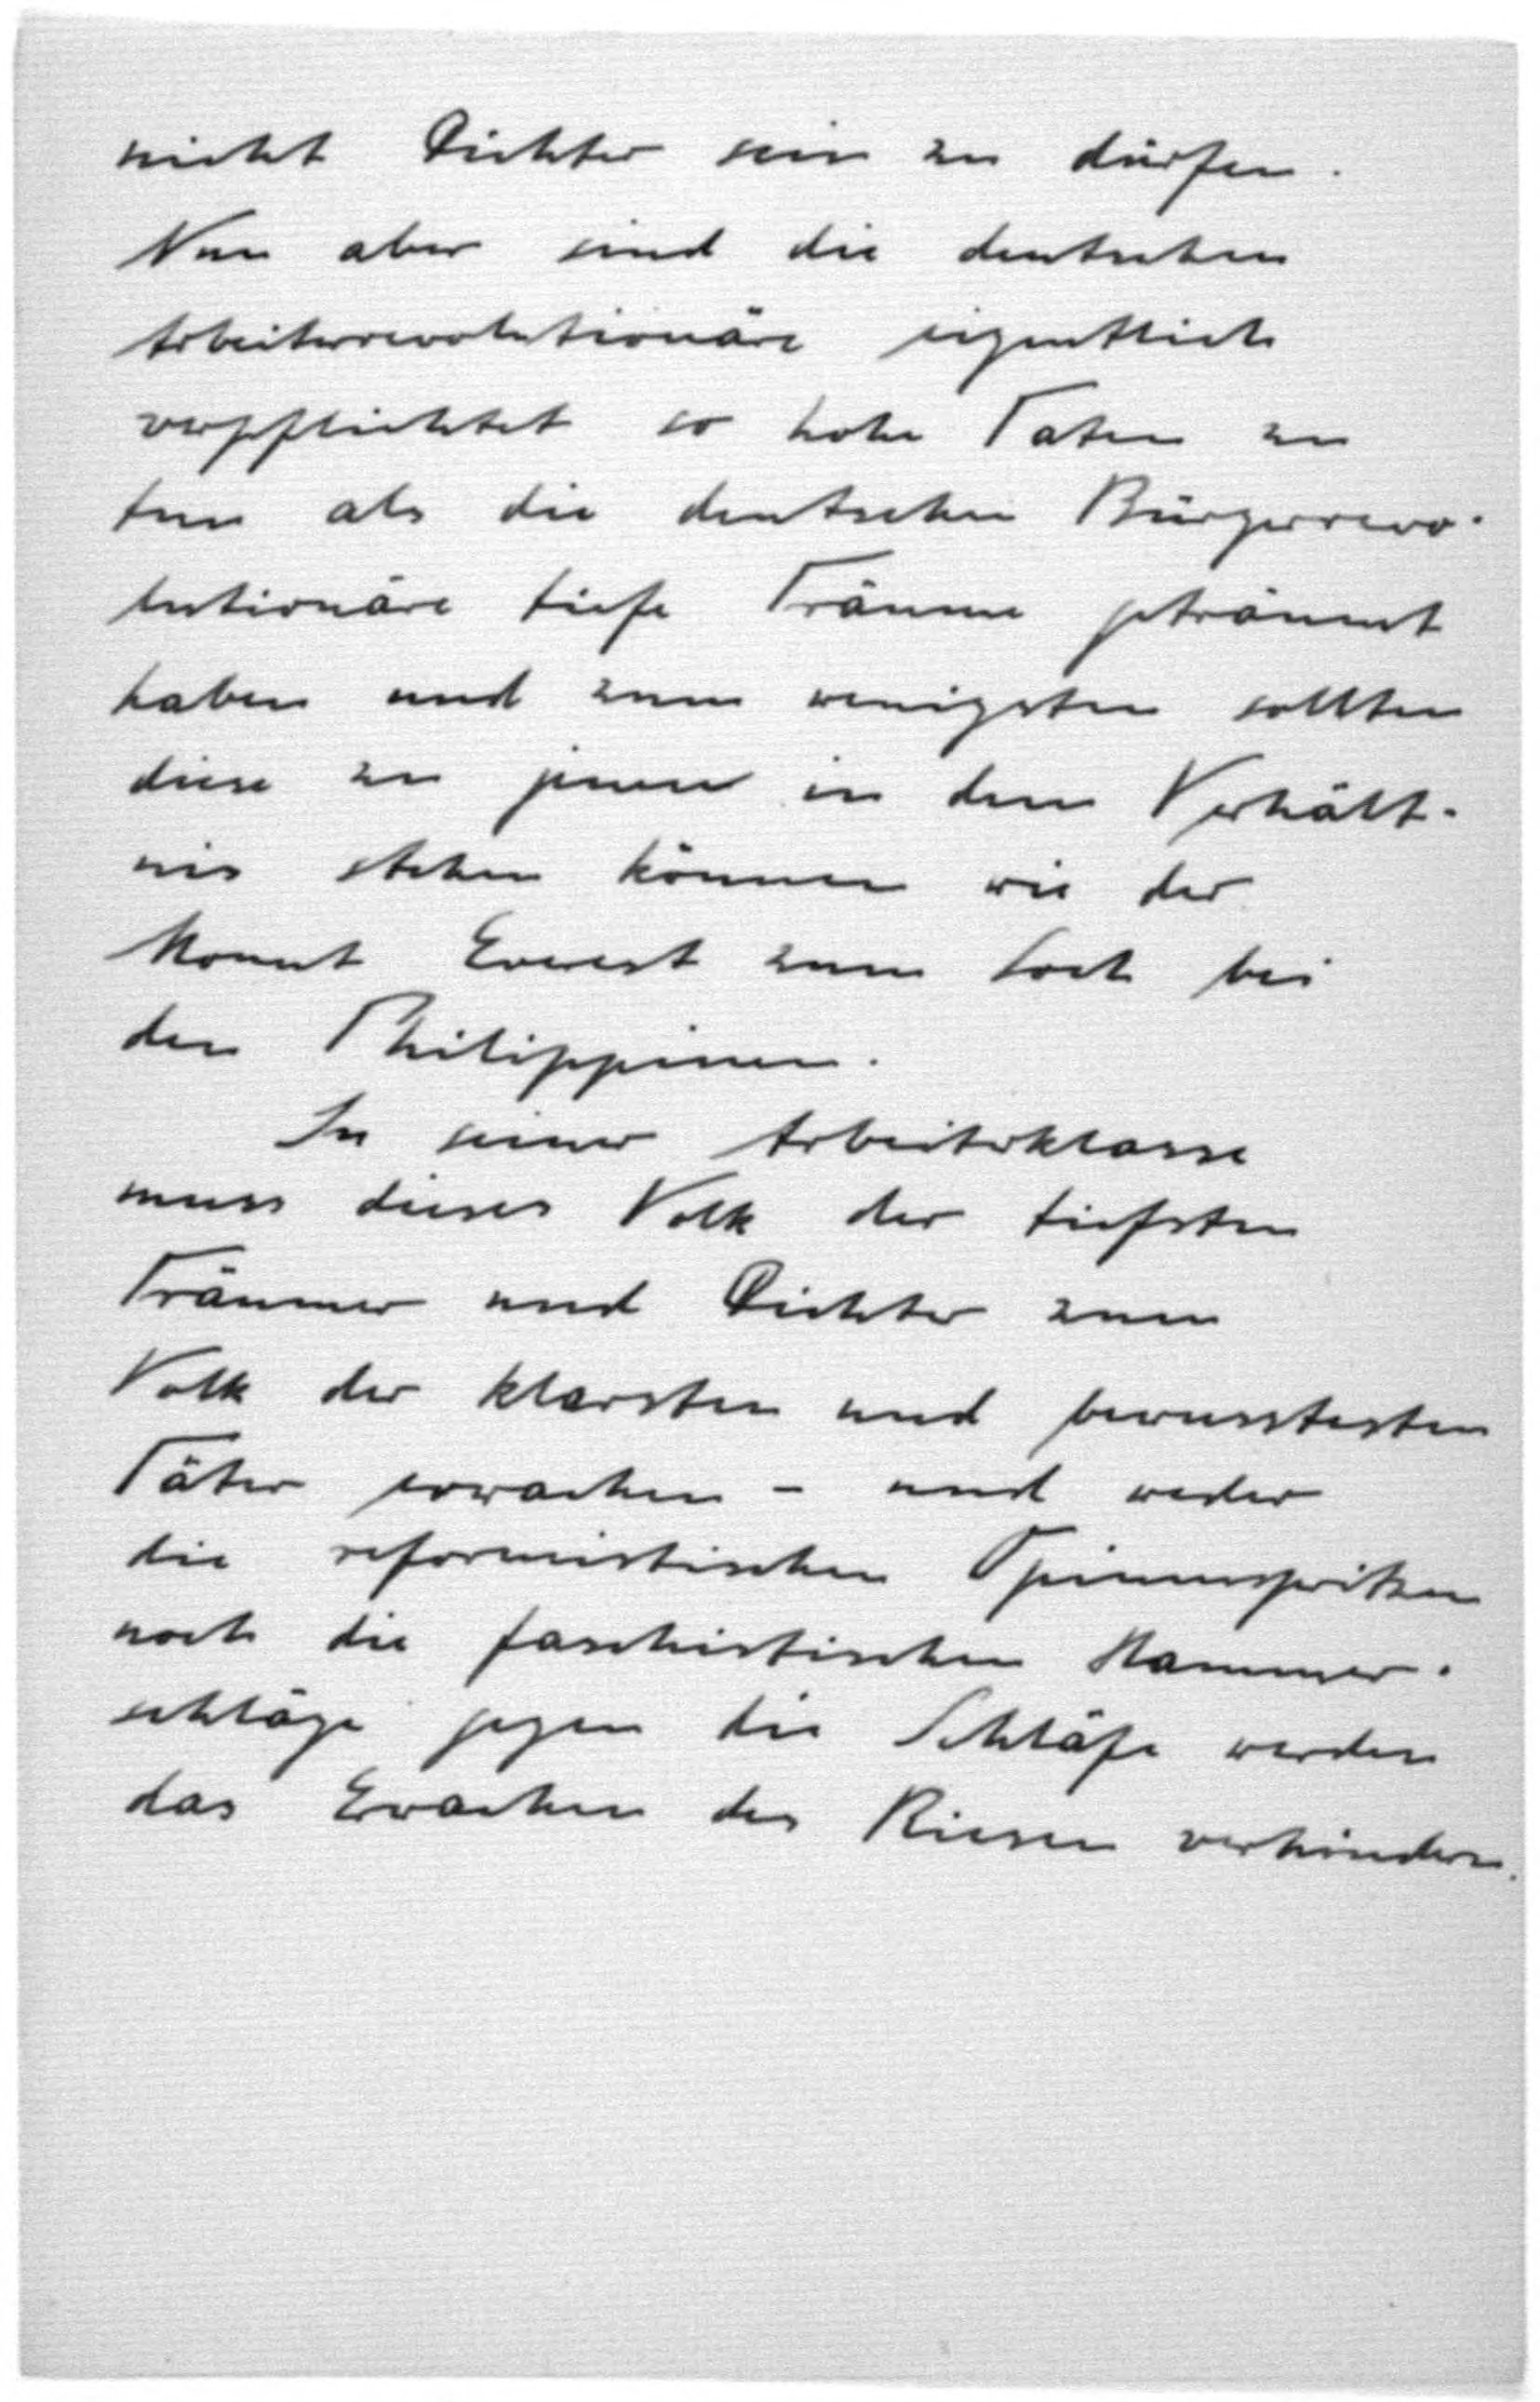 nicht Dichter sein zu dürfen.
Nun aber sind die deutschen
Arbeiterrevolutionäre eigentlich
verpflichtet so hohe Taten zu
tun als die deutschen Bürgerrevo-
lutionäre tiefe Träume geträumt
haben und zum wenigsten sollten
diese zu jenen in dem Verhält-
nis stehen können wie der
Mount Everest zum Loch bei
den Philippinen.
In seiner Arbeiterklasse
muss dieses Volk der tiefsten
Träumer und Dichter zum
Volk der klarsten und bewusstesten
Täter erwachen - und weder
die reformistischen Opiumspritzen
noch die faschistischen Hammer-
schläge gegen die Schläfe werden
das Erwachen des Riesen verhindern.